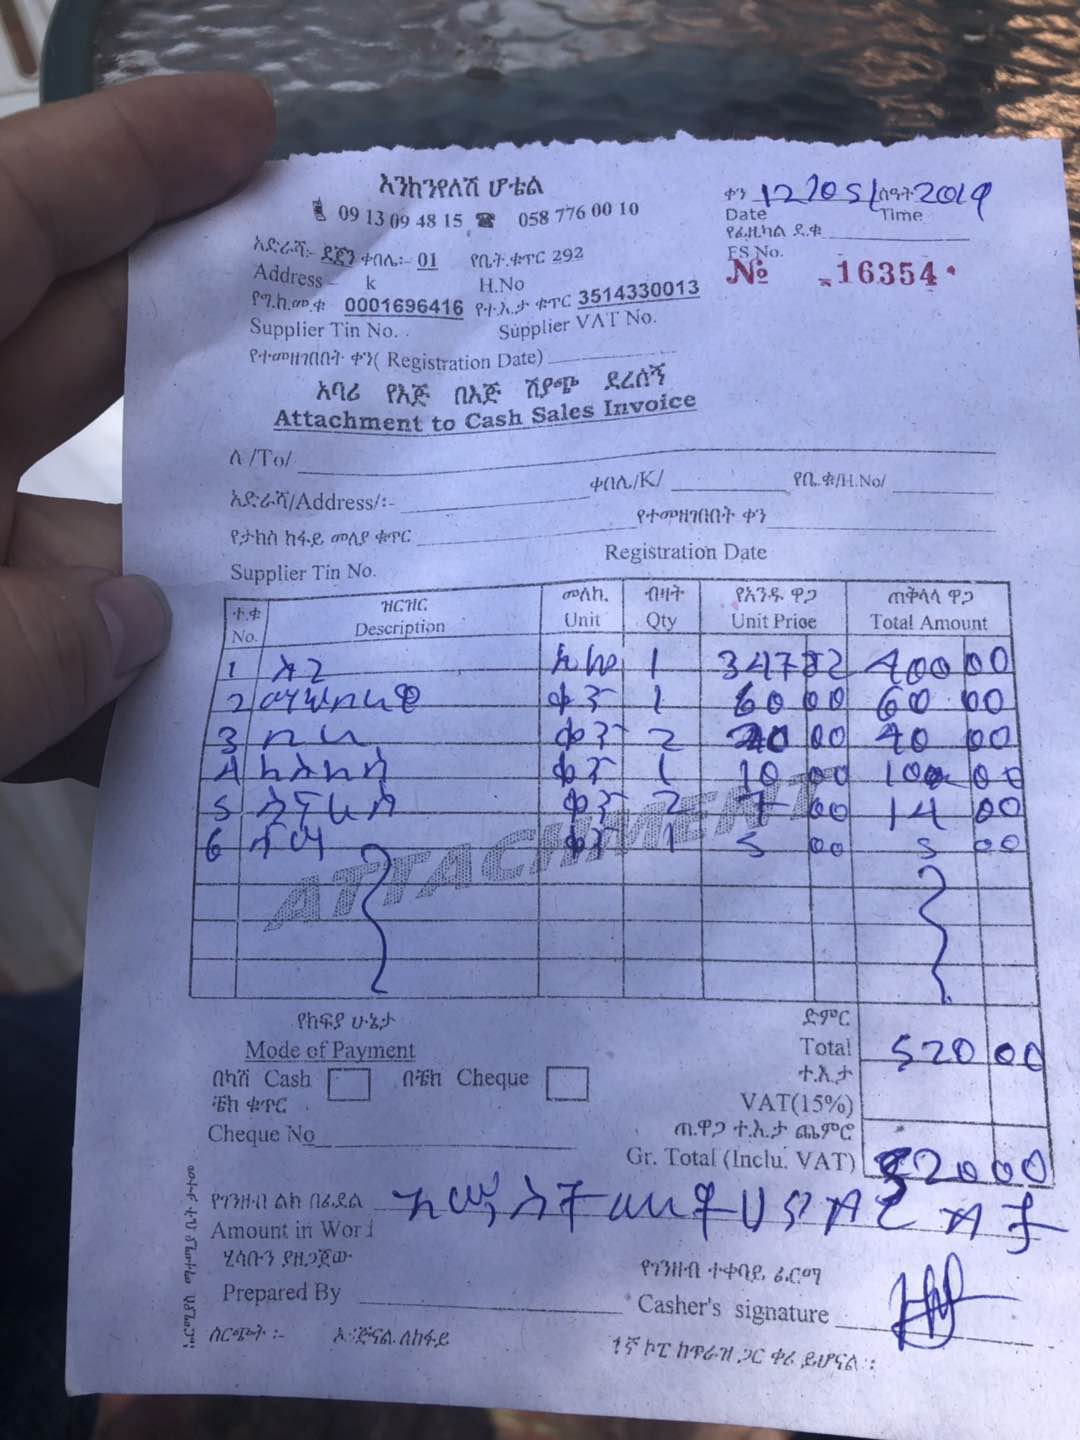 እንከንየለሽ ሆቴል
09 13 09 48 15 058 776 00 10
ቀን 12/05/ ሰዓት 2019
Date Time
የፊዚካል ደ.ቁ
FS No.
№ 16354
አድራሻ፡- ደጀን ቀበሌ፡- 01 የቤት.ቁጥር 292
Address k H.No
የግ.ከ.መ.ቁ 0001696416 የተ.እ.ታ ቁጥር 3514330013
Supplier Tin No. Supplier VAT No.
የተመዘገበበት ቀን( Registration Date)
አባሪ የእጅ በእጅ ሽያጭ ደረሰኝ
Attachment to Cash Sales Invoice
ለ /To/
አድራሻ/Address/፡- ቀበሌ/K/ የቤ.ቁ/H.No/
የታክስ ከፋይ መለያ ቁጥር የተመዘገበበት ቀን
Supplier Tin No. Registration Date
ተ.ቁ ዝርዝር መለኪ. ብዛት የአንዱ ዋጋ ጠቅላላ ዋጋ
No. Description Unit Qty Unit Price Total Amount
1 ኪሎ 1 347 82 400 00
2 ማህበራዊ ቁጥር 1 60 00 60 00
3 ቁጥር 2 20 00 40 00
4 ቁጥር 1 10 00 10 00
5 ቁጥር 2 7 00 14 00
6 ቁጥር 1 5 00 5 00
ATTACHMENT
የከፍያ ሁኔታ ድምር
Mode of Payment Total 520 00
በካሽ Cash በቼክ Cheque ተ.እ.ታ
ቼክ ቁጥር VAT(15%)
Cheque No ጠ.ዋጋ ተ.እ.ታ ጨምሮ
Gr. Total (Inclu. VAT) 520 00
የገንዘብ ልክ በፊደል
Amount in Word
ሂሳቡን ያዘጋጀው የገንዘብ ተቀባይ ፊርማ
Prepared By Casher's signature
ስርጭት ፡- ኦሪጅናል ለከፋይ 1ኛ ኮፒ ከጥራዝ ጋር ቀሪ ይሆናል ፡፡